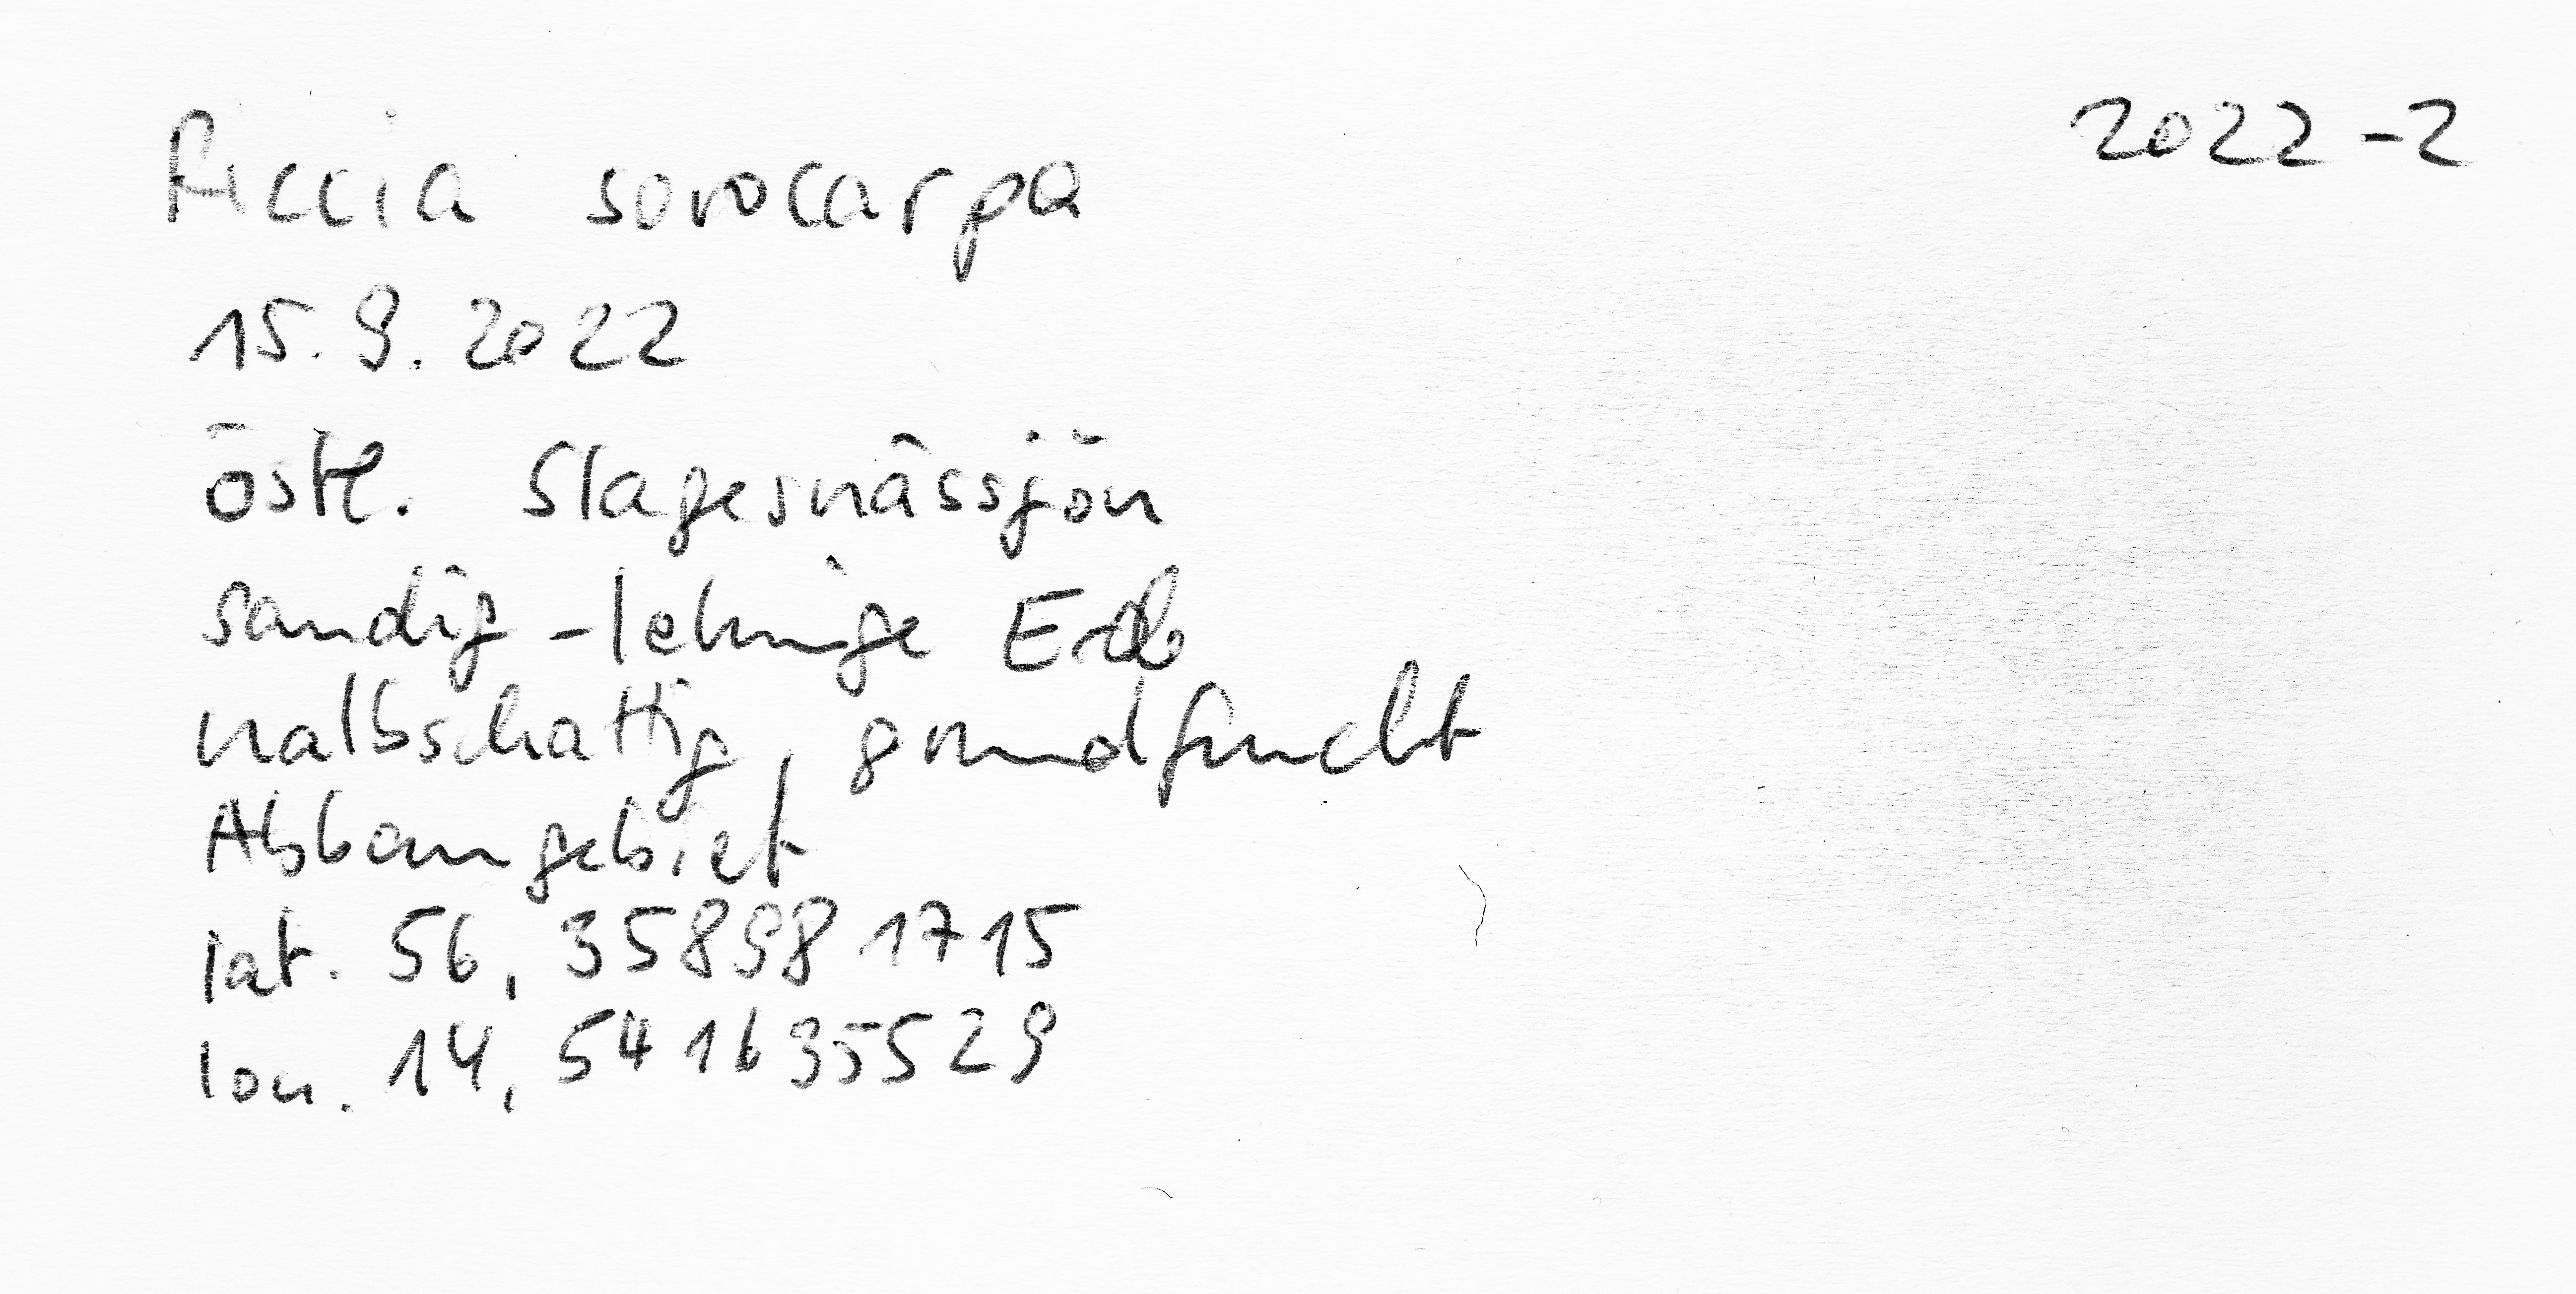 Riccia sorocarpa 2022-2
15.9.2022
östl. Slagesnässjön
sandig-lehmige Erde
halbschattig, grundfeucht
Abbaugebiet
lat. 56,358981715
lon. 14,541635529